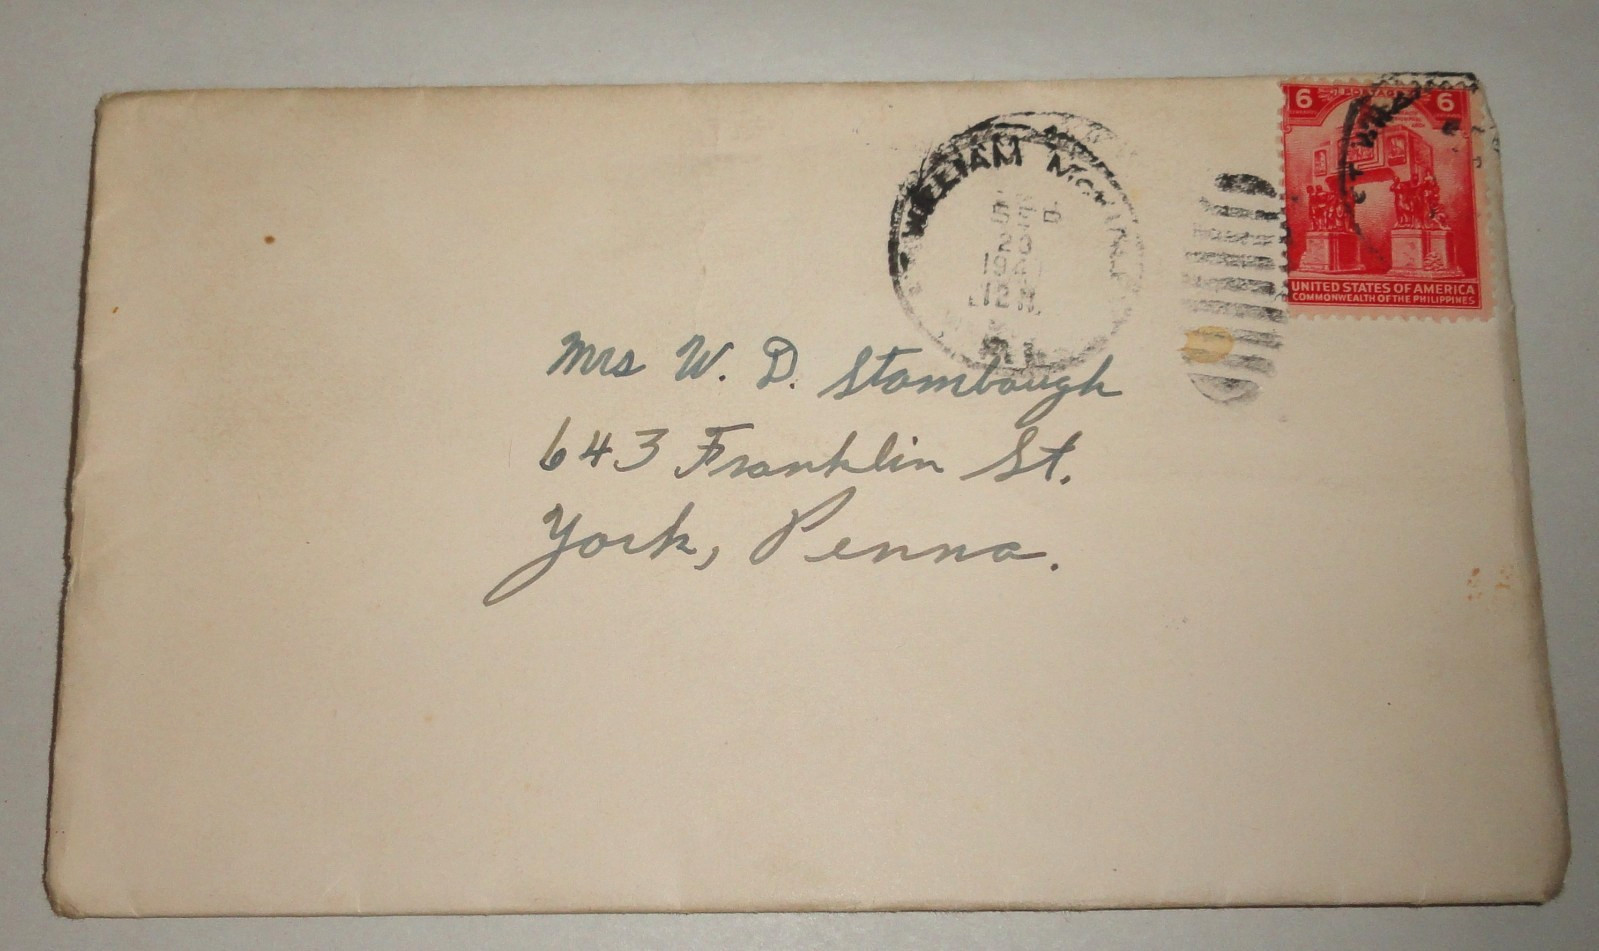 6 POSTAGE 6
UNITED STATES OF AMERICA
COMMONWEALTH OF THE PHILIPPINES
WILLIAM
20
12 M.
P.I.
Mrs W. D. Stambaugh
643 Franklin St.
York, Penna.